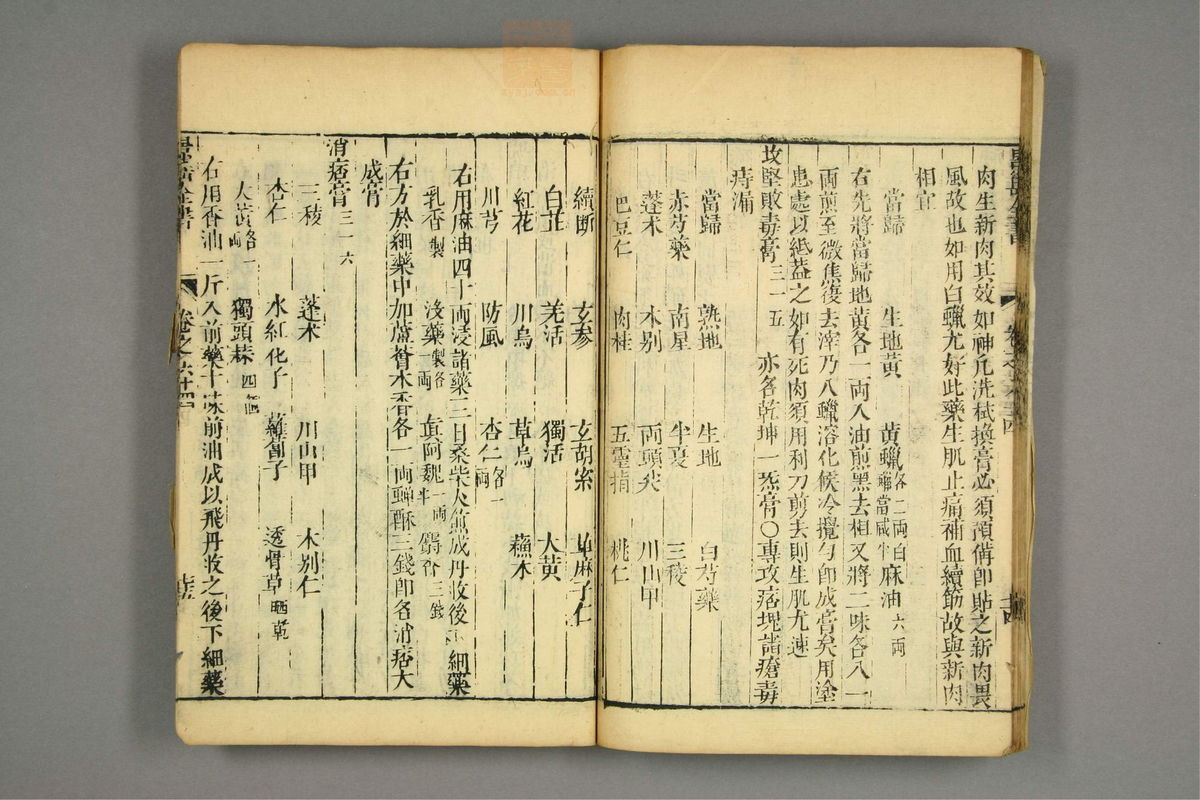 肉生新肉其效如神凡洗拭換膏必須預備即貼之新肉畏
風故也如用白蠟尤好此藥生肌止痛補血續筋故與新肉
相宜
當歸 生地黃 黃蠟 各二兩白麻油 六兩
右先將當歸地黃各一兩入油煎黑去柤又將二味各入一
兩煎至微焦復去滓乃入蠟溶化候冷攪勻即成膏矣用塗
患處以紙蓋之如有死肉須用利刀剪去則生肌尤速
攻堅敗毒膏 三一五 亦名乾坤一炁膏○專攻痞塊諸瘡毒
痔漏
當歸 熟地 生地 白芍藥
赤芍藥 南星 半夏 三稜
蓬朮 木別 兩頭尖 川山甲
巴豆仁 肉桂 五靈脂 桃仁
續斷 玄參 玄胡索 蓖麻子仁
白芷 羌活 獨活 大黃
紅花 川烏 草烏 蘇木
川芎 防風 杏仁 各一兩
右用麻油四十兩浸諸藥三日桑柴火煎成丹收後下細藥
乳香 製 沒藥 製各一兩 真阿魏 一兩半 麝香 三錢
右方於細藥中加蘆薈木香各一兩蟬酥三錢即名消痞大
成膏
消痞膏 三一六
三稜 蓬朮 川山甲 木別仁
杏仁 水紅花子 蘿蔔子 透骨草 晒乾
大黃 各一兩 獨頭蒜 四個
右用香油一斤入前藥十味煎油成以飛丹收之後下細藥
卷之六十四